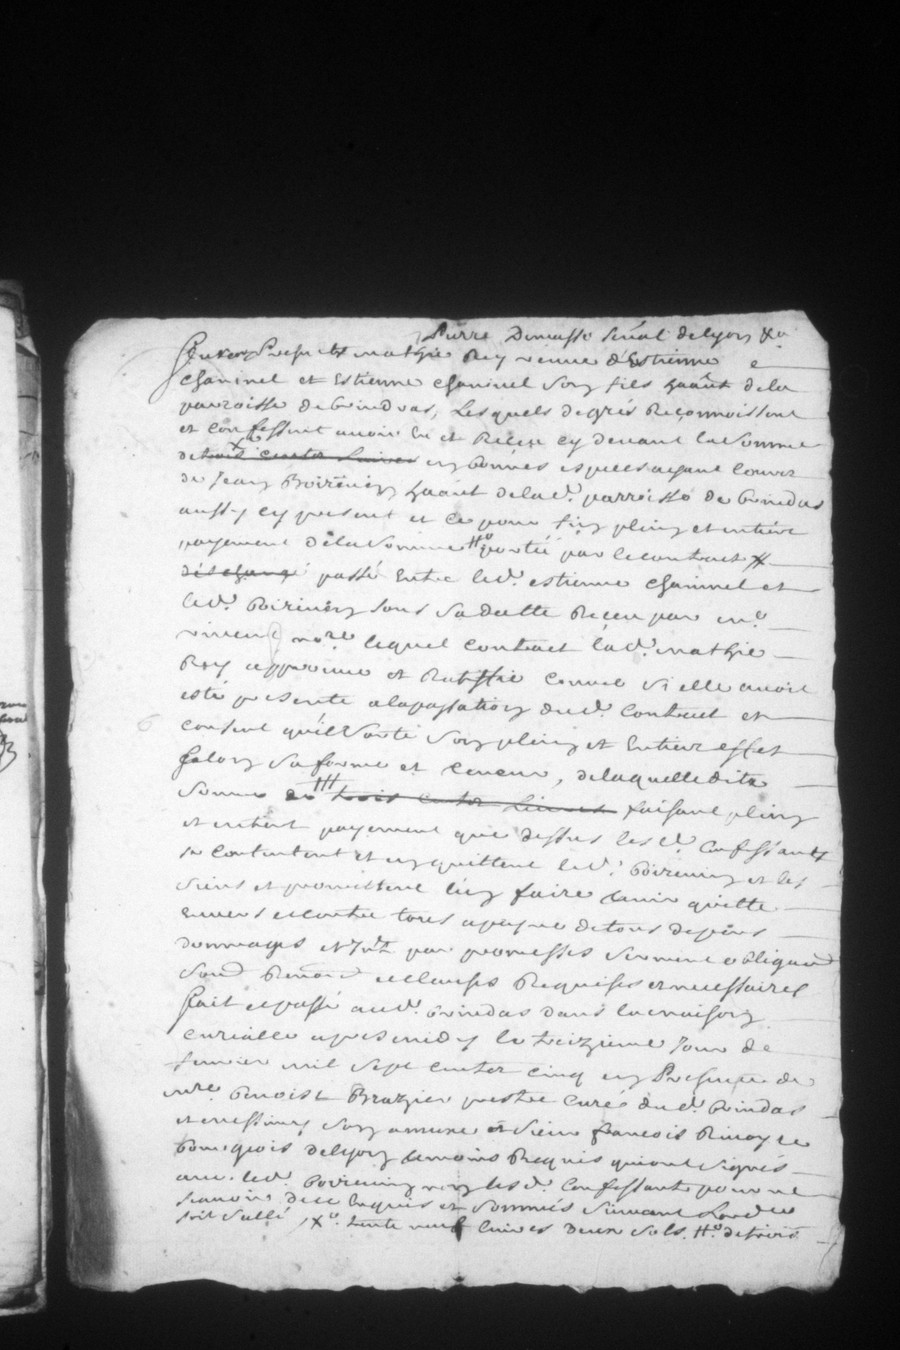 Pierre Dumasse Sénal delyon &a
En Presents mathie Rey veuve d'Estienne
Chaninel et Estienne Chaninel son fils haânt dela
parroisse de brindas, Lesquels de grés Reconnoissent
et confessent avoir Eu et Receu cy devant la Somme
de trois centz Livres en bonnes especes ayant Cours
de Jean Boirivin haânt de lad. parroisse de brindas
aussy cy present et ce pour fin plein et entiere
payement de la Somme portée par le contract
déschange passé Entre led. estienne Chaninel et
led. Boirivin sous sa datte Receu par me.
nore lequel Contract lad. mathie
Rey approuve et Rattiffie Comme Si elle avoit
esté presente alapassation dud. Contract et
consent qu'il sorte son plein et Entier effet
selon sa forme et teneur, de laquelle dite
somme de trois centz Livres faisant plein
et entier payement que dessus les d. Confessants
se contentent et en quittent led. Boirivin et les
siens et promettent l'en faire tenir quitte
Envers et contre tous apeyne de tous depens
dommages et Intz par promesses serment obligaõns
soud Renonõns et clauses Requises et necessaires
fait et passé aud. brindas dans la maison
curialle apres midy le treizieme Jour de
fevrier mil sept centz cinq en Presence de
mre. benoist Brazier prestre Curé dud. brindas
et messire son et Sieur francois
bourgeois delyon temoins Requis qui ont signés
avec led. Boirivin non lesd. Confessants pour ne
scavoir de ce Enquis et sommés suivant Lordce
soit sallé, Xo. trente neuf Livres deux sols. #o. de trois